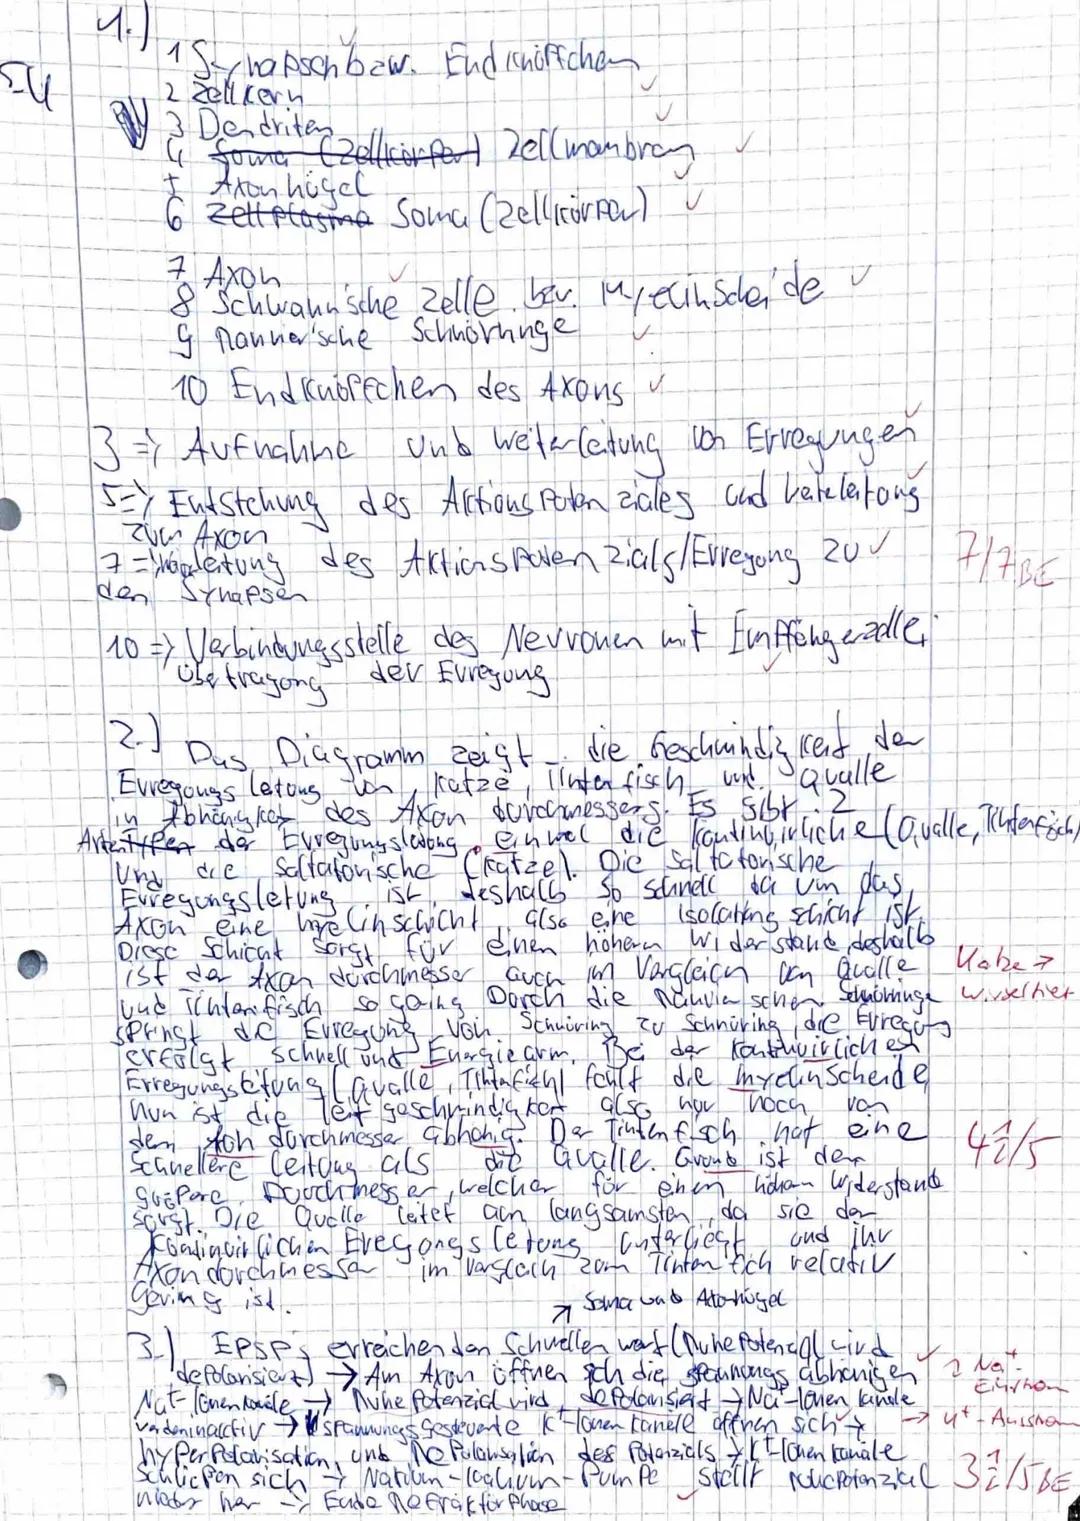 1.)
1 Synapsen bzw. Endknöffchen
2 Zellkern
3 Dendriten
4 Soma (Zellkörper) Zellmembran
5 Axonhügel
6 Zellplasma Soma (Zellkörper)
7 Axon
8 Schwann'sche Zelle bzw. Myelinscheide
9 Rannier'sche Schnürringe
10 Endknöpfchen des Axons
3 => Aufnahme und Weiterleitung von Erregungen
5 => Entstehung des Aktionspotenziales und Weiterleitung
zum Axon
7 => Weiterleitung des Aktionspotenzials/Erregung zu
den Synapsen
7/7 BE
10 => Verbindungsstelle des Neuronen mit Empfängerzelle,
Übertragung der Erregung
2.) Das Diagramm zeigt die Geschwindigkeit der
Erregungsleitung von Katze, Tintenfisch und Qualle
in Abhängigkeit des Axondurchmessers. Es gibt 2
Arten der Erregungsleitung einmal die kontinuirliche (Qualle, Tintenfisch)
und die saltatorische (Katze). Die saltatorische
Erregungsleitung ist deshalb so schnell da um das
Axon eine Myelinschicht also eine isolating schicht ist.
Diese Schicht sorgt für einen höheren Widerstand deshalb
ist der Axondurchmesser auch im Vergleich von Qualle
und Tintenfisch so gering Durch die Schnürringe
Katze → Wirbeltier
springt die Erregung von Schnüring zu Schnüring, die Erregung
erfolgt schnell und Energiearm. Bei der kontinuirlichen
Erregungsleitung (Qualle, Tintenfisch) fehlt die Myelinscheide,
nun ist die Leitgeschwindigkeit also nur noch von
dem Axondurchmesser abhänig. Der Tintenfisch hat eine
schnellere Leitung als die Qualle. Grund ist der
4½/5
größere Durchmesser, welcher für einen höhern Widerstand
sorgt. Die Qualle leitet am langsamsten, da sie der
kontinuirlichen Erregungsleitung unterliegt und ihr
Axondurchmesser im Vergleich zum Tintenfich relativ
gering ist.
↗ Soma und Axonhügel
3.) EPSP's erreichen den Schwellenwert (Ruhepotenzial wird
depolarsiert) → Am Axon öffnen sich die spannungsabhänigen
Na⁺-Ionenkanäle → Ruhepotenzial wird depolarisiert → Na⁺-Ionenkanäle
werden inactiv → spannungsgesteuerte K⁺-Ionenkanäle öffnen sich →
hyperpolarisation und Repolarisation des Potenzials → K⁺-Ionenkanäle
schließen sich → Natrium-Kalium-Pumpe stellt Ruhepotenzial
wieder her → Ende Refraktärphase
Na⁺-Einstrom
→ K⁺-Ausstrom
3½/5 BE